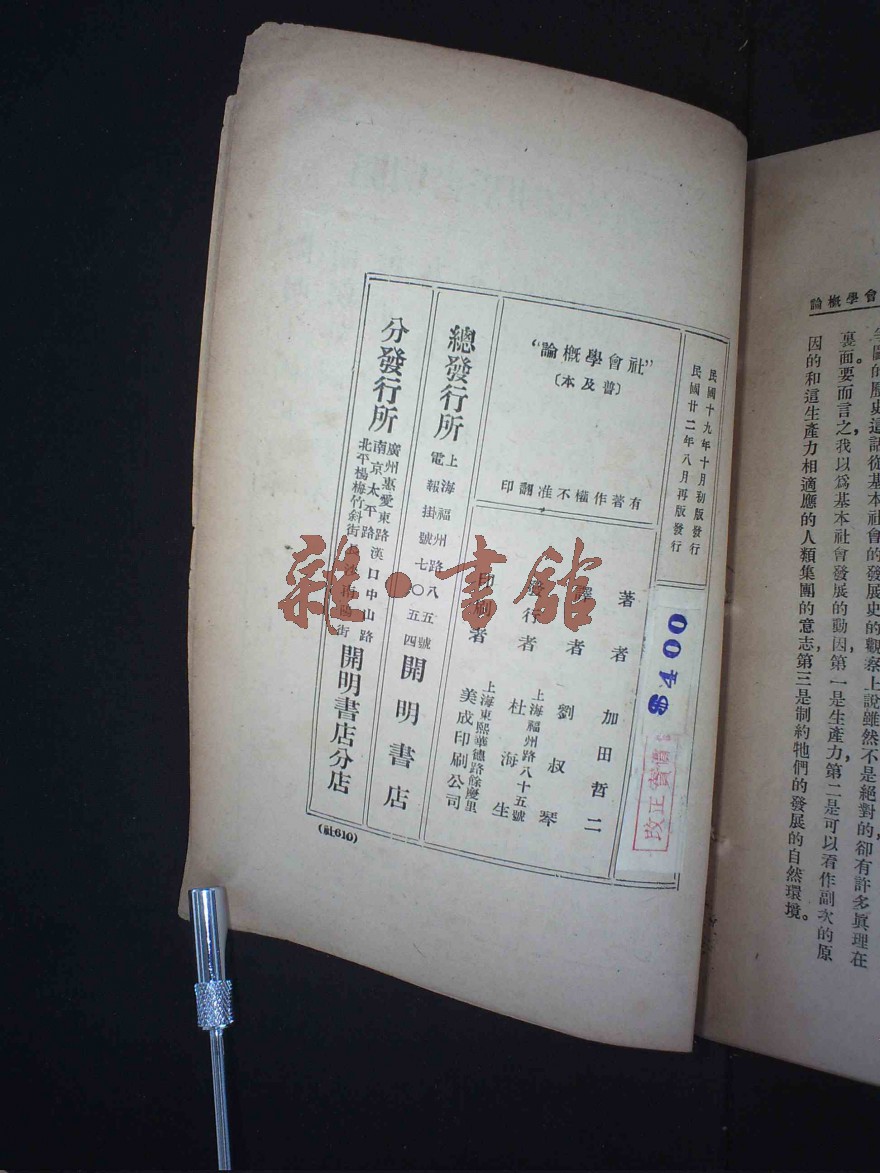 民國十九年十月初版發行
民國廿二年八月再版發行
"社會學概論"
〔普及本〕
有著作權不准翻印
著者 加田哲二
譯者 劉叔琴
發行者 上海福州路八十五號
杜海生
印刷者 上海東熙華德路餘慶里
美成印刷公司
改正實價:
$400
總發行所 上海福州路八五號
電報掛號七〇五四
開明書店
分發行所 廣州惠愛東路漢口中山路
南京太平路長沙南陽街
北平楊梅竹斜街
開明書店分店
(社610)
雜·書館
會學概論
的歷史這話從基本社會的發展史的觀察上說雖然不是絕對的,卻有許多眞理在
裏面。要而言之我以爲基本社會發展的動因,第一是生產力,第二是可以看作副次的原
因的和這生產力相適應的人類集團的意志,第三是制約牠們的發展的自然環境。